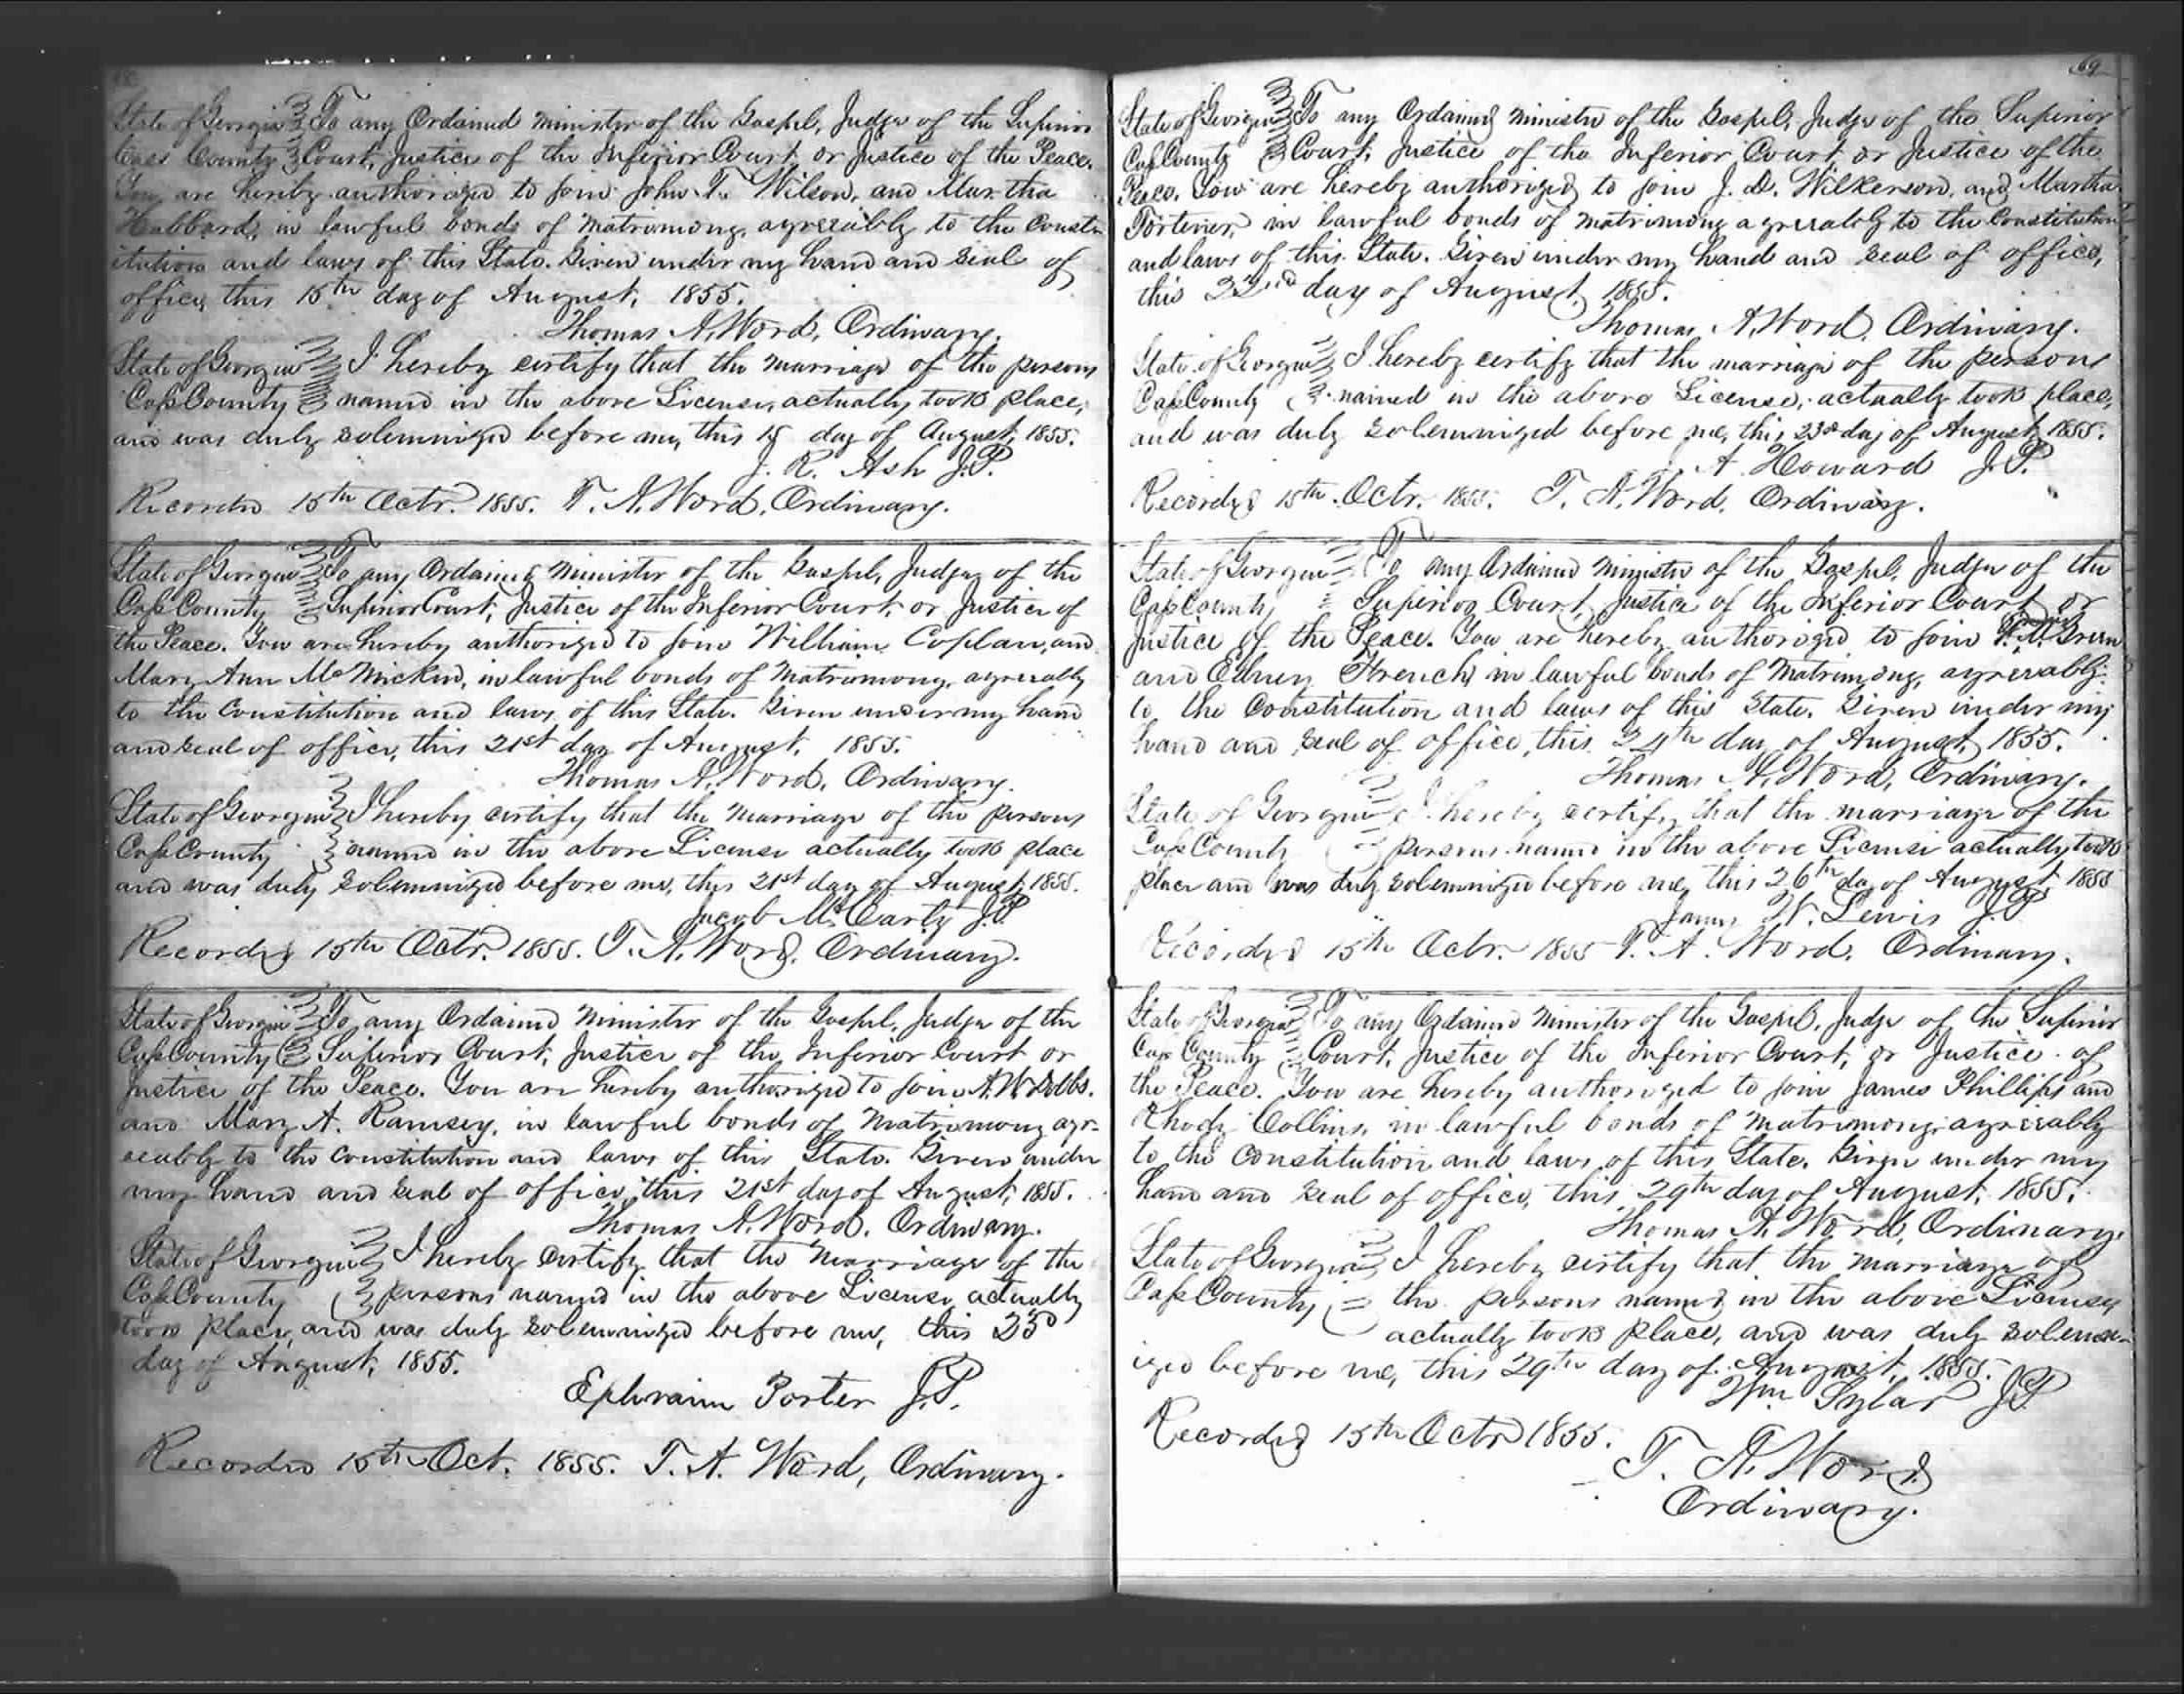 State of Georgia To any Ordained Minister of the Gospel, Judge of the Superior
Cass County Court, Justices of the Inferior Court or Justice of the Peace.
You are hereby authorized to join John T. Wilson, and Martha
Hubbard, in lawful bonds of matrimony, agreeably to the Const-
itution and laws of this State. Given under my hand and seal of
office, this 15th day of August, 1855.
Thomas A. Word, Ordinary.
State of Georgia I hereby certify that the marriage of the persons
Cass County named in the above License, actually took place,
and was duly solemnized before me, this 15 day of August, 1855.
J. R. Ash J.P.
Recorded 15th Octr. 1855. T. A. Word, Ordinary.
State of Georgia To any Ordained Minister of the Gospel, Judge of the
Cass County Superior Court, Justice of the Inferior Court, or Justice of
the Peace. You are hereby authorized to join William Coplan, and
Mary Ann McMickin, in lawful bonds of Matrimony, agreeably
to the Constitution and laws of this State. Given under my hand
and seal of office, this 21st day of August, 1855.
Thomas A. Word, Ordinary.
State of Georgia I hereby certify that the Marriage of the persons
Cass County named in the above License actually took place
and was duly solemnized before me, this 21st day of August, 1855.
Jacob McCarty J.P.
Recorded 15th Octr. 1855. T. A. Word, Ordinary.
State of Georgia To any Ordained Minister of the Gospel, Judge of the
Cass County Superior Court, Justice of the Inferior Court or
Justice of the Peace. You are hereby authorized to join A. W. Dobbs.
and Mary A. Ramsey, in lawful bonds of Matrimony agr-
eeably to the Constitution and laws of this State. Given under
my hand and seal of office, this 21st day of August, 1855.
Thomas A. Word, Ordinary.
State of Georgia I hereby certify that the Marriage of the
Cass County persons named in the above License actually
took place, and was duly solemnized before me, this 23d
day of August, 1855.
Ephraim Porter J.P.
Recorded 15th Oct. 1855. T. A. Word, Ordinary.
69
State of Georgia To any Ordained Minister of the Gospel, Judge of the Superior
Cass County Court, Justice of the Inferior Court or Justice of the
Peace. You are hereby authorized to join J. D. Wilkerson, and Martha
Fortener, in lawful bonds of matrimony agreeably to the Constitution
and laws of this State. Given under my hand and seal of office,
this 22nd day of August, 1855.
Thomas A. Word, Ordinary.
State of Georgia I hereby certify that the marriage of the persons
Cass County named in the above License, actually took place,
and was duly solemnized before me, this 23d day of August, 1855.
A. Howard J.P.
Recorded 15th Octr. 1855. T. A. Word, Ordinary.
State of Georgia To any Ordained Minister of the Gospel, Judge of the
Cass County Superior Court, Justice of the Inferior Court or
Justice of the Peace. You are hereby authorized to join Green
and Edney French in lawful bonds of Matrimony, agreeably
to the Constitution and laws of this State. Given under my
hand and seal of office, this 24th day of August, 1855.
Thomas A. Word, Ordinary.
State of Georgia I hereby certify that the marriage of the
Cass County persons named in the above License actually took
place and was duly solemnized before me, this 26th day of August, 1855
James W. Lewis J.P.
Recorded 15th Octr. 1855 T. A. Word, Ordinary.
State of Georgia To any Ordained Minister of the Gospel, Judge of the Superior
Cass County Court, Justice of the Inferior Court, or Justice of
the Peace. You are hereby authorized to join James Phillips and
Rhody Collins, in lawful bonds of matrimony, agreeably
to the Constitution and laws of this State. Given under my
hand and seal of office, this 29th day of August, 1855.
Thomas A. Word, Ordinary.
State of Georgia I hereby certify that the marriage of
Cass County the persons named in the above License
actually took place, and was duly solemn-
ized before me, this 29th day of August, 1855.
Wm Sylar J.P.
Recorded 15th Octr 1855.
T. A. Word
Ordinary.